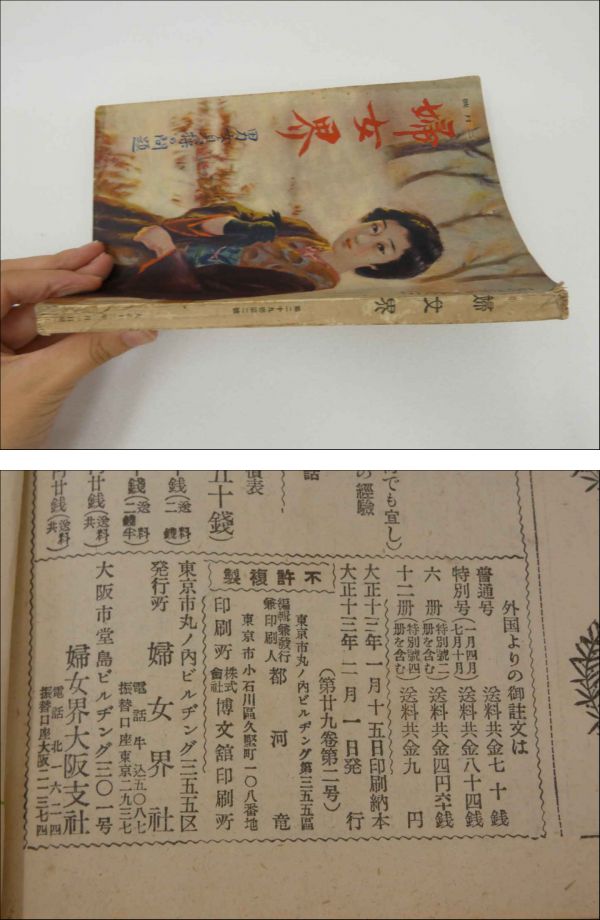 婦女界
男女貞操の問題
婦女界
第二十九卷第二號
でも宜し）
の經驗
話
價表
五十錢）
錢（送料二錢）
錢（送料二錢半）
廿錢（送料共）
廿錢（送料共）
外国よりの御註文は
普通号 送料共金七十錢
特別号（一月四月七月十月） 送料共金八十四錢
六册（特別號二册を含む） 送料共金四円卒錢
十二册（特別號四册を含む） 送料共金九円
不許複製
大正十三年一月十五日印刷納本
大正十三年二月一日発行
（第廿九卷第二号）
東京市丸ノ内ビルヂング第三五五區
編輯兼發行兼印刷人 都河竜
東京市小石川區久堅町一〇八番地
印刷所 株式會社 博文舘印刷所
東京市丸ノ内ビルヂング三五五区
発行所 婦女界社
電話牛込五〇八七
振替口座東京二九三七
大阪市堂島ビルヂング三〇一号
婦女界大阪支社
電話北六二四
振替口座大阪二一三七四